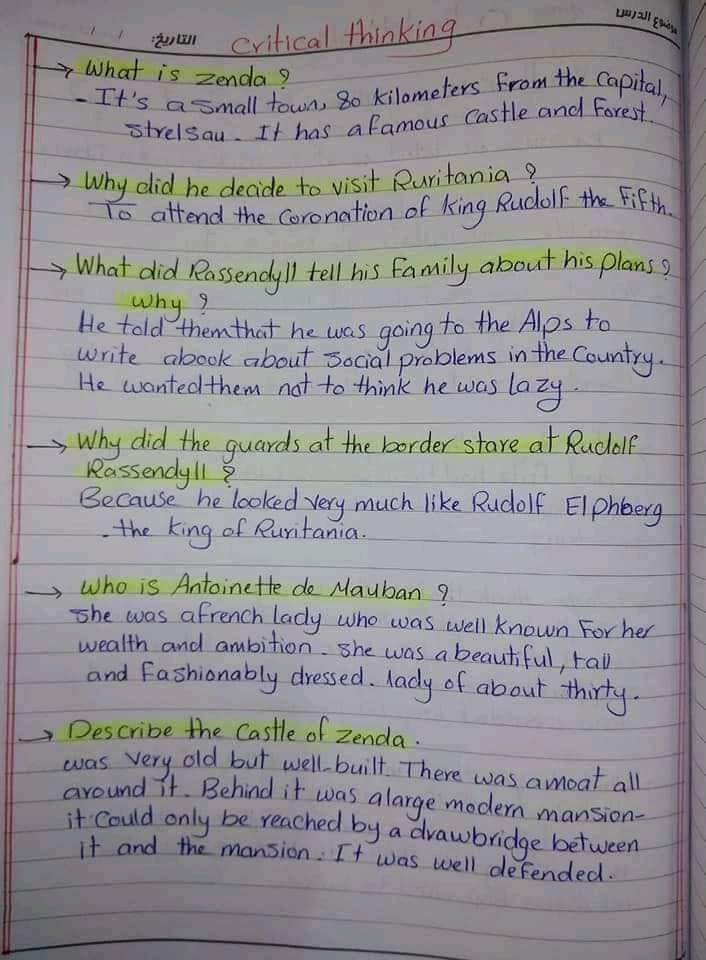 موضوع الدرس
التاريخ: / /
Critical thinking
→ What is Zenda?
- It's a small town, 80 kilometers from the Capital,
Strelsau. It has a famous Castle and Forest.
→ Why did he decide to visit Ruritania?
To attend the Coronation of King Rudolf the Fifth.
→ What did Rassendyll tell his family about his plans?
Why?
He told them that he was going to the Alps to
write a book about Social problems in the Country.
He wanted them not to think he was lazy.
→ Why did the guards at the border stare at Rudolf
Rassendyll?
Because he looked very much like Rudolf Elphberg
. the King of Ruritania.
→ Who is Antoinette de Mauban?
She was a french lady who was well known For her
wealth and ambition. She was a beautiful, tall
and fashionably dressed. lady of about thirty.
→ Describe the Castle of Zenda.
was very old but well-built. There was a moat all
around it. Behind it was a large modern mansion-
it Could only be reached by a drawbridge between
it and the mansion. It was well defended.